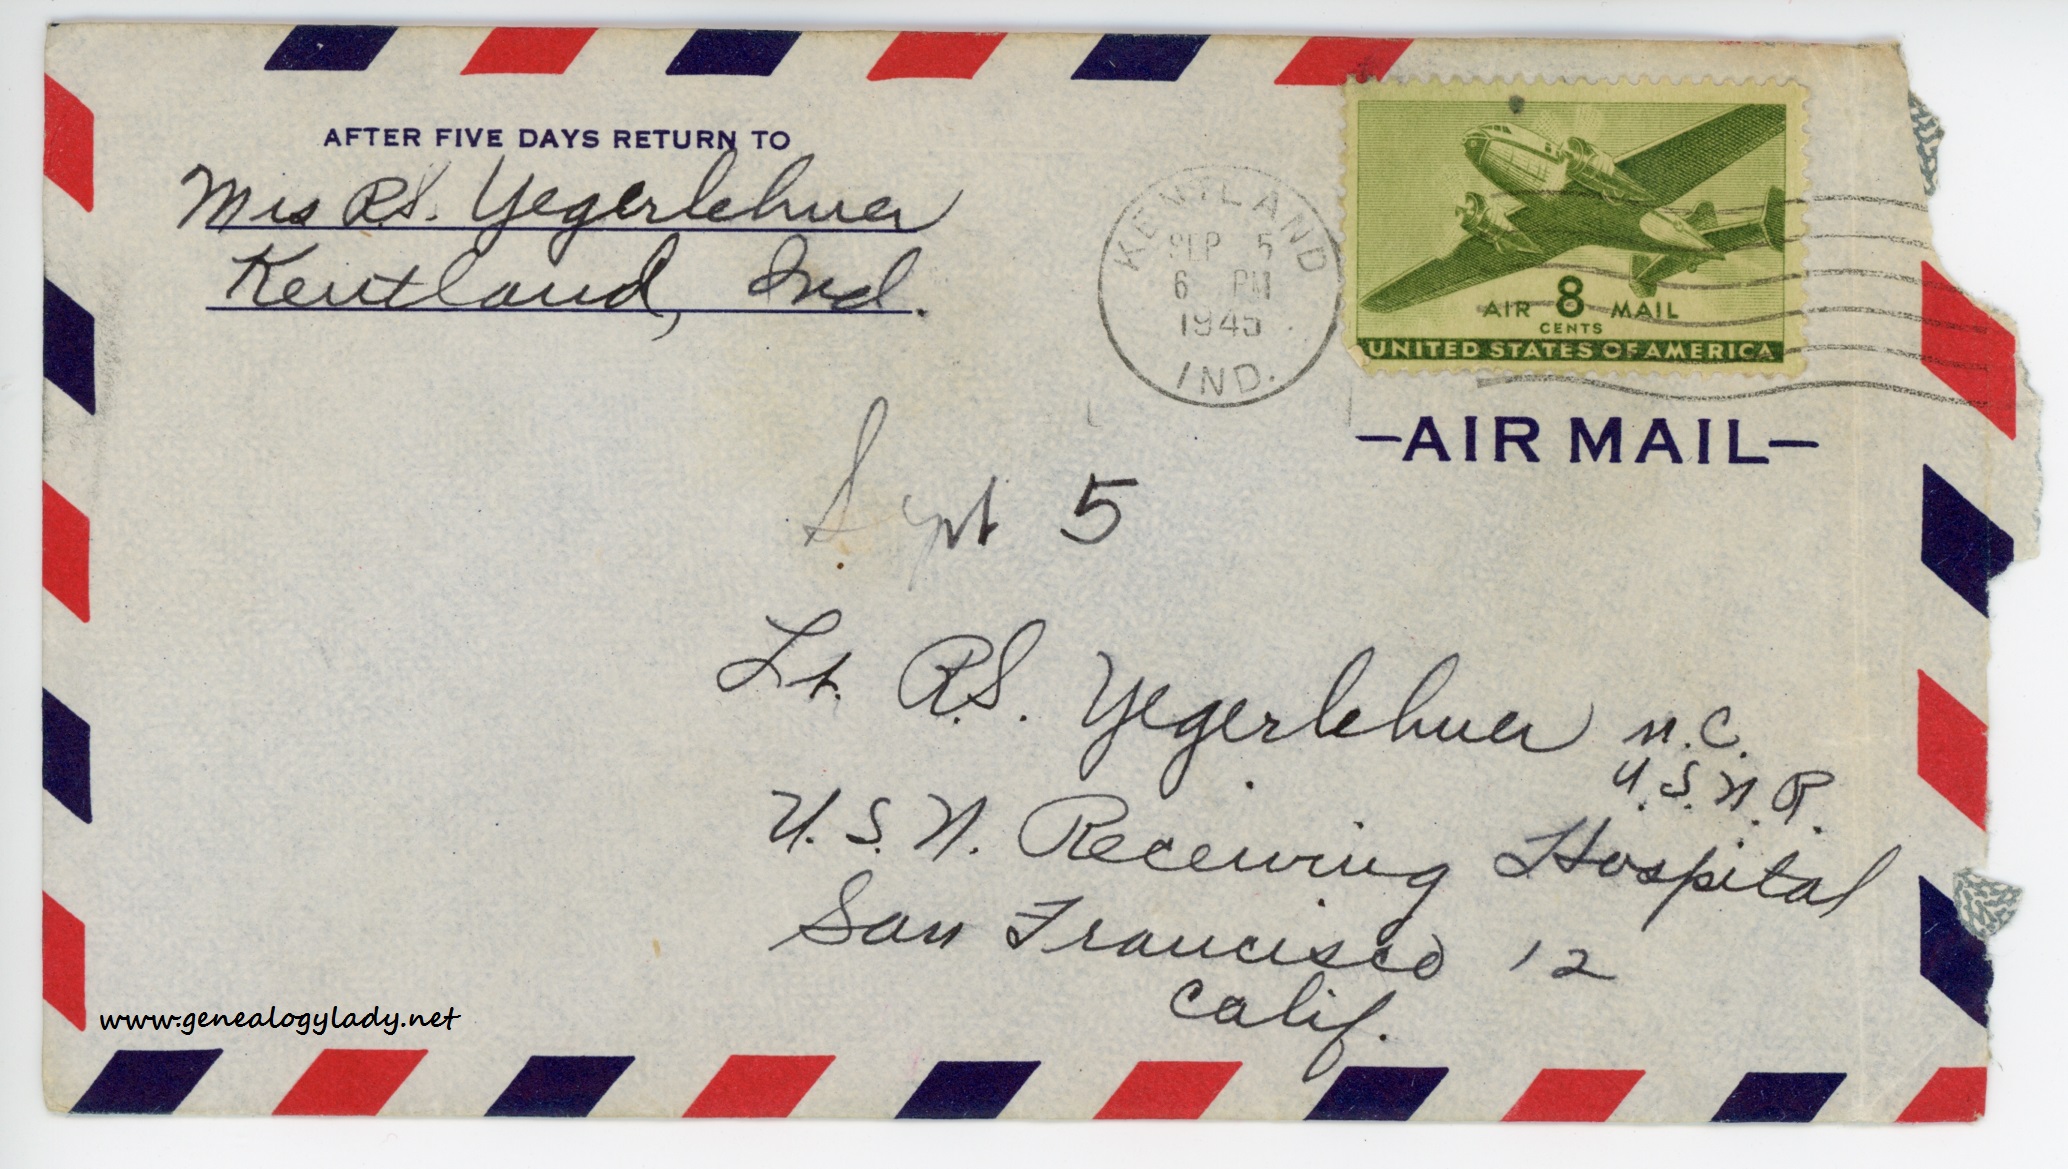 AFTER FIVE DAYS RETURN TO
Mrs R.S. Yegerlehner
Kentland, Ind.
KENTLAND
SEP 5
6 PM
1945
IND.
AIR 8 MAIL
CENTS
UNITED STATES OF AMERICA
—AIR MAIL—
Sept 5
Lt. R.S. Yegerlehner M.C.
U.S.N.R.
U.S.N. Receiving Hospital
San Francisco 12
Calif.
www.genealogylady.net